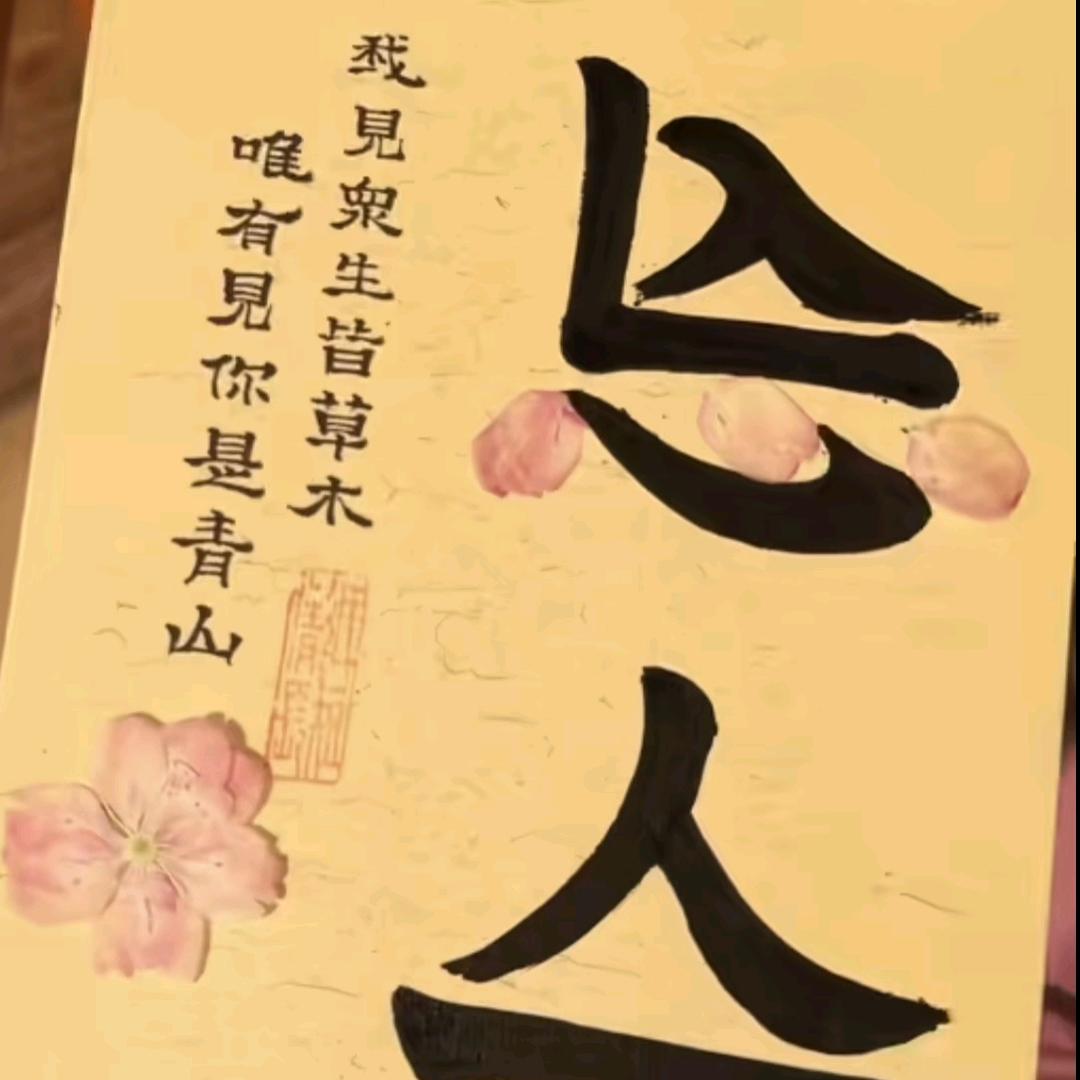 㤀
我見衆生皆草木
唯有見你是青山